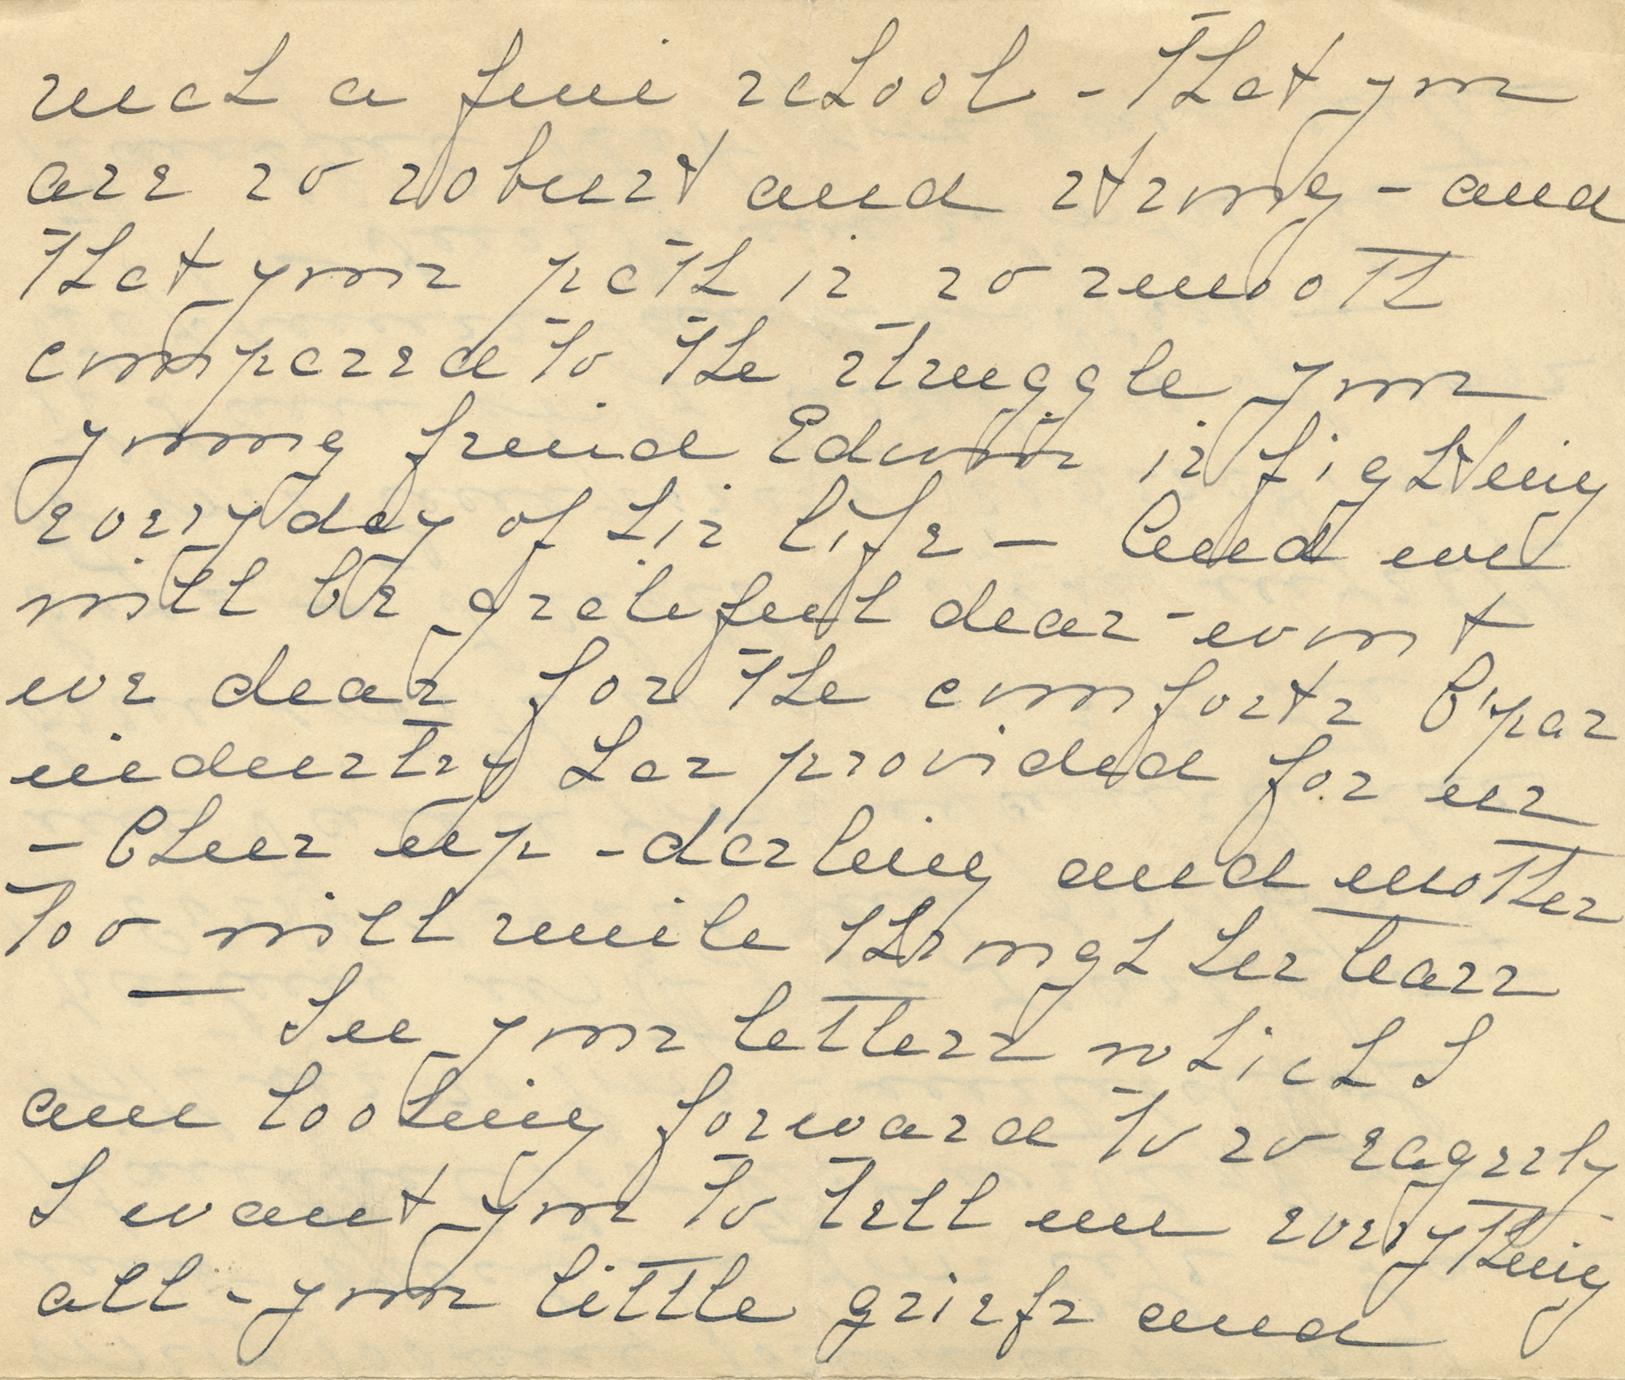 such a fine school - that you
are so robust and strong - and
that your path is so smooth
compared to the struggle your
young friend Edwin is fighting
every day of his life - And we
will be grateful dear - wont
we dear for the comforts B'par
industry has provided for us
- Cheer up - darling and mother
too will smile through her tears
— In your letters which I
am looking forward to so eagerly
I want you to tell me everything
all - your little griefs and